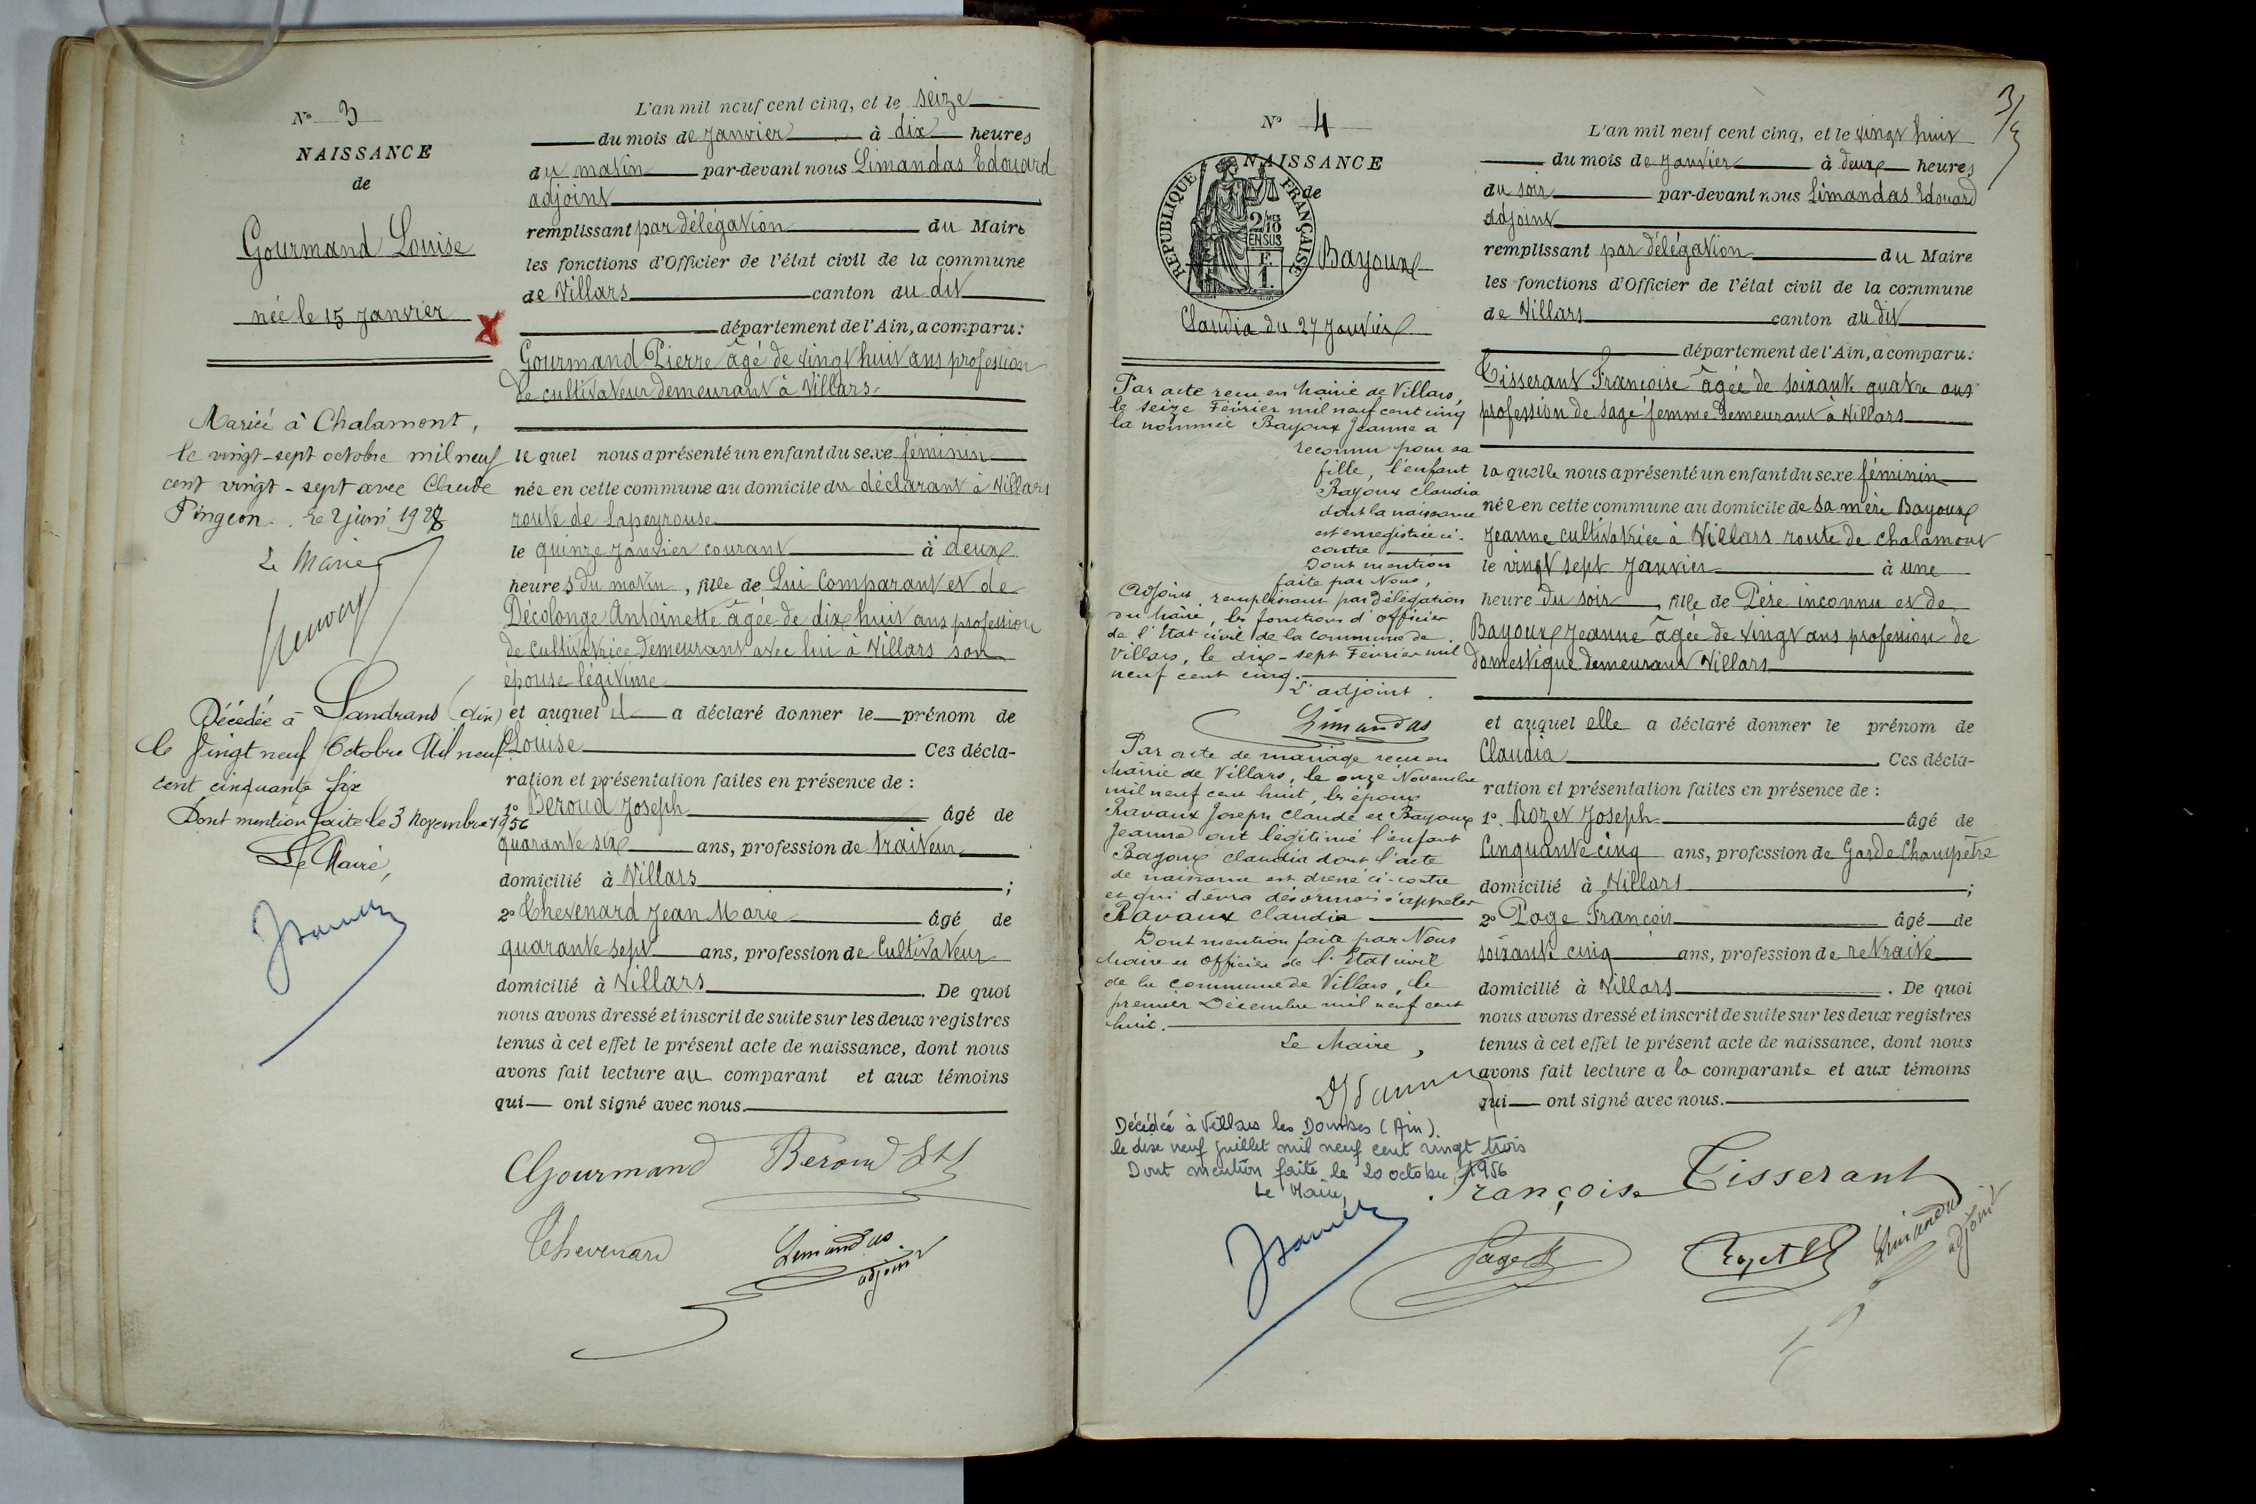 N° 3
NAISSANCE
de
Gourmand Louise
née le 15 Janvier
Mariée à Chalamont,
le vingt-sept octobre mil neuf
cent vingt-sept avec Claude
Pingeon. Le 2 juin 1928
Le Maire
Décédée à Sandrans (Ain)
le vingt neuf Octobre Mil neuf
cent cinquante six
Dont mention faite le 3 Novembre 1956
Le Maire,
L'an mil neuf cent cinq, et le seize
du mois de Janvier à dix heures
du matin par-devant nous Limandas Edouard
adjoint
remplissant par délégation du Maire
les fonctions d'Officier de l'état civil de la commune
de Villars canton du dit
département de l'Ain, a comparu:
Gourmand Pierre âgé de vingt huit ans profession
de cultivateur demeurant à Villars
le quel nous a présenté un enfant du sexe féminin
née en cette commune au domicile du déclarant à Villars
route de Lapeyrouse
le quinze Janvier courant à deux
heures du matin, fille de Lui Comparant et de
Décolonge Antoinette âgée de dix huit ans profession
de cultivatrice demeurant avec lui à Villars son
épouse légitime
et auquel il a déclaré donner le prénom de
Louise Ces décla-
ration et présentation faites en présence de :
1° Beroud Joseph âgé de
quarante six ans, profession de traiteur
domicilié à Villars ;
2° Chevenard Jean Marie âgé de
quarante sept ans, profession de Cultivateur
domicilié à Villars . De quoi
nous avons dressé et inscrit de suite sur les deux registres
tenus à cet effet le présent acte de naissance, dont nous
avons fait lecture au comparant et aux témoins
qui ont signé avec nous.
Gourmand Beroud
Chevenard Limandas
adjoint
3/
N° 4
NAISSANCE
de
REPUBLIQUE FRANÇAISE
2/10 MES
EN SUS
F.
1.
Bayoux
Claudia du 27 Janvier
Par acte reçu en Mairie de Villars,
le seize Février mil neuf cent cinq
la nommée Bayoux Jeanne a
reconnu pour sa
fille, l'enfant
Bayoux Claudia
dont la naissance
est enregistrée ci-
contre
Dont mention
faite par Nous,
Adjoint, remplissant par délégation
du Maire, les fonctions d'officier
de l'Etat civil de la commune de
Villars, le dix-sept Février mil
neuf cent cinq.
L'adjoint.
Limandas
Par acte de mariage reçu en
Mairie de Villars, le onze Novembre
mil neuf cent huit, les époux
Ravaux Joseph Claude et Bayoux
Jeanne ont légitimé l'enfant
Bayoux Claudia dont l'acte
de naissance est dressé ci-contre
et qui devra désormais s'appeler
Ravaux Claudia
Dont mention faite par Nous
Maire et Officier de l'Etat civil
de la commune de Villars, le
premier Décembre mil neuf cent
huit.
Le Maire,
Décédée à Villars les Dombes (Ain)
le dix neuf Juillet mil neuf cent vingt trois
Dont mention faite le 20 octobre 1956
Le Maire,
L'an mil neuf cent cinq, et le vingt huit
du mois de Janvier à deux heures
du soir par-devant nous Limandas Edouard
Adjoint
remplissant par délégation du Maire
les fonctions d'Officier de l'état civil de la commune
de Villars canton du dit
département de l'Ain, a comparu:
Tisserant Françoise âgée de soixante quatre ans
profession de sage femme demeurant à Villars
la quelle nous a présenté un enfant du sexe féminin
née en cette commune au domicile de sa mère Bayoux
Jeanne cultivatrice à Villars route de Chalamont
le vingt sept Janvier à une
heure du soir, fille de Père inconnu et de
Bayoux Jeanne âgée de vingt ans profession de
domestique demeurant Villars
et auquel elle a déclaré donner le prénom de
Claudia . Ces décla-
ration et présentation faites en présence de :
1° Rozet Joseph âgé de
Cinquante cinq ans, profession de Garde Champêtre
domicilié à Villars ;
2° Page François âgé de
soixante cinq ans, profession de retraité
domicilié à Villars . De quoi
nous avons dressé et inscrit de suite sur les deux registres
tenus à cet effet le présent acte de naissance, dont nous
avons fait lecture a la comparante et aux témoins
qui ont signé avec nous.
Françoise Tisserant
Page Rozet Limandas
adjoint